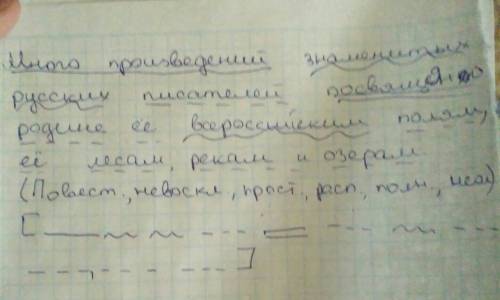 Много произведений знаменитых
русских писателей посвящено
родине её всероссийским полям,
её лесам, рекам и озерам
(Повест., невоскл., прост., расп., полн., неосл)